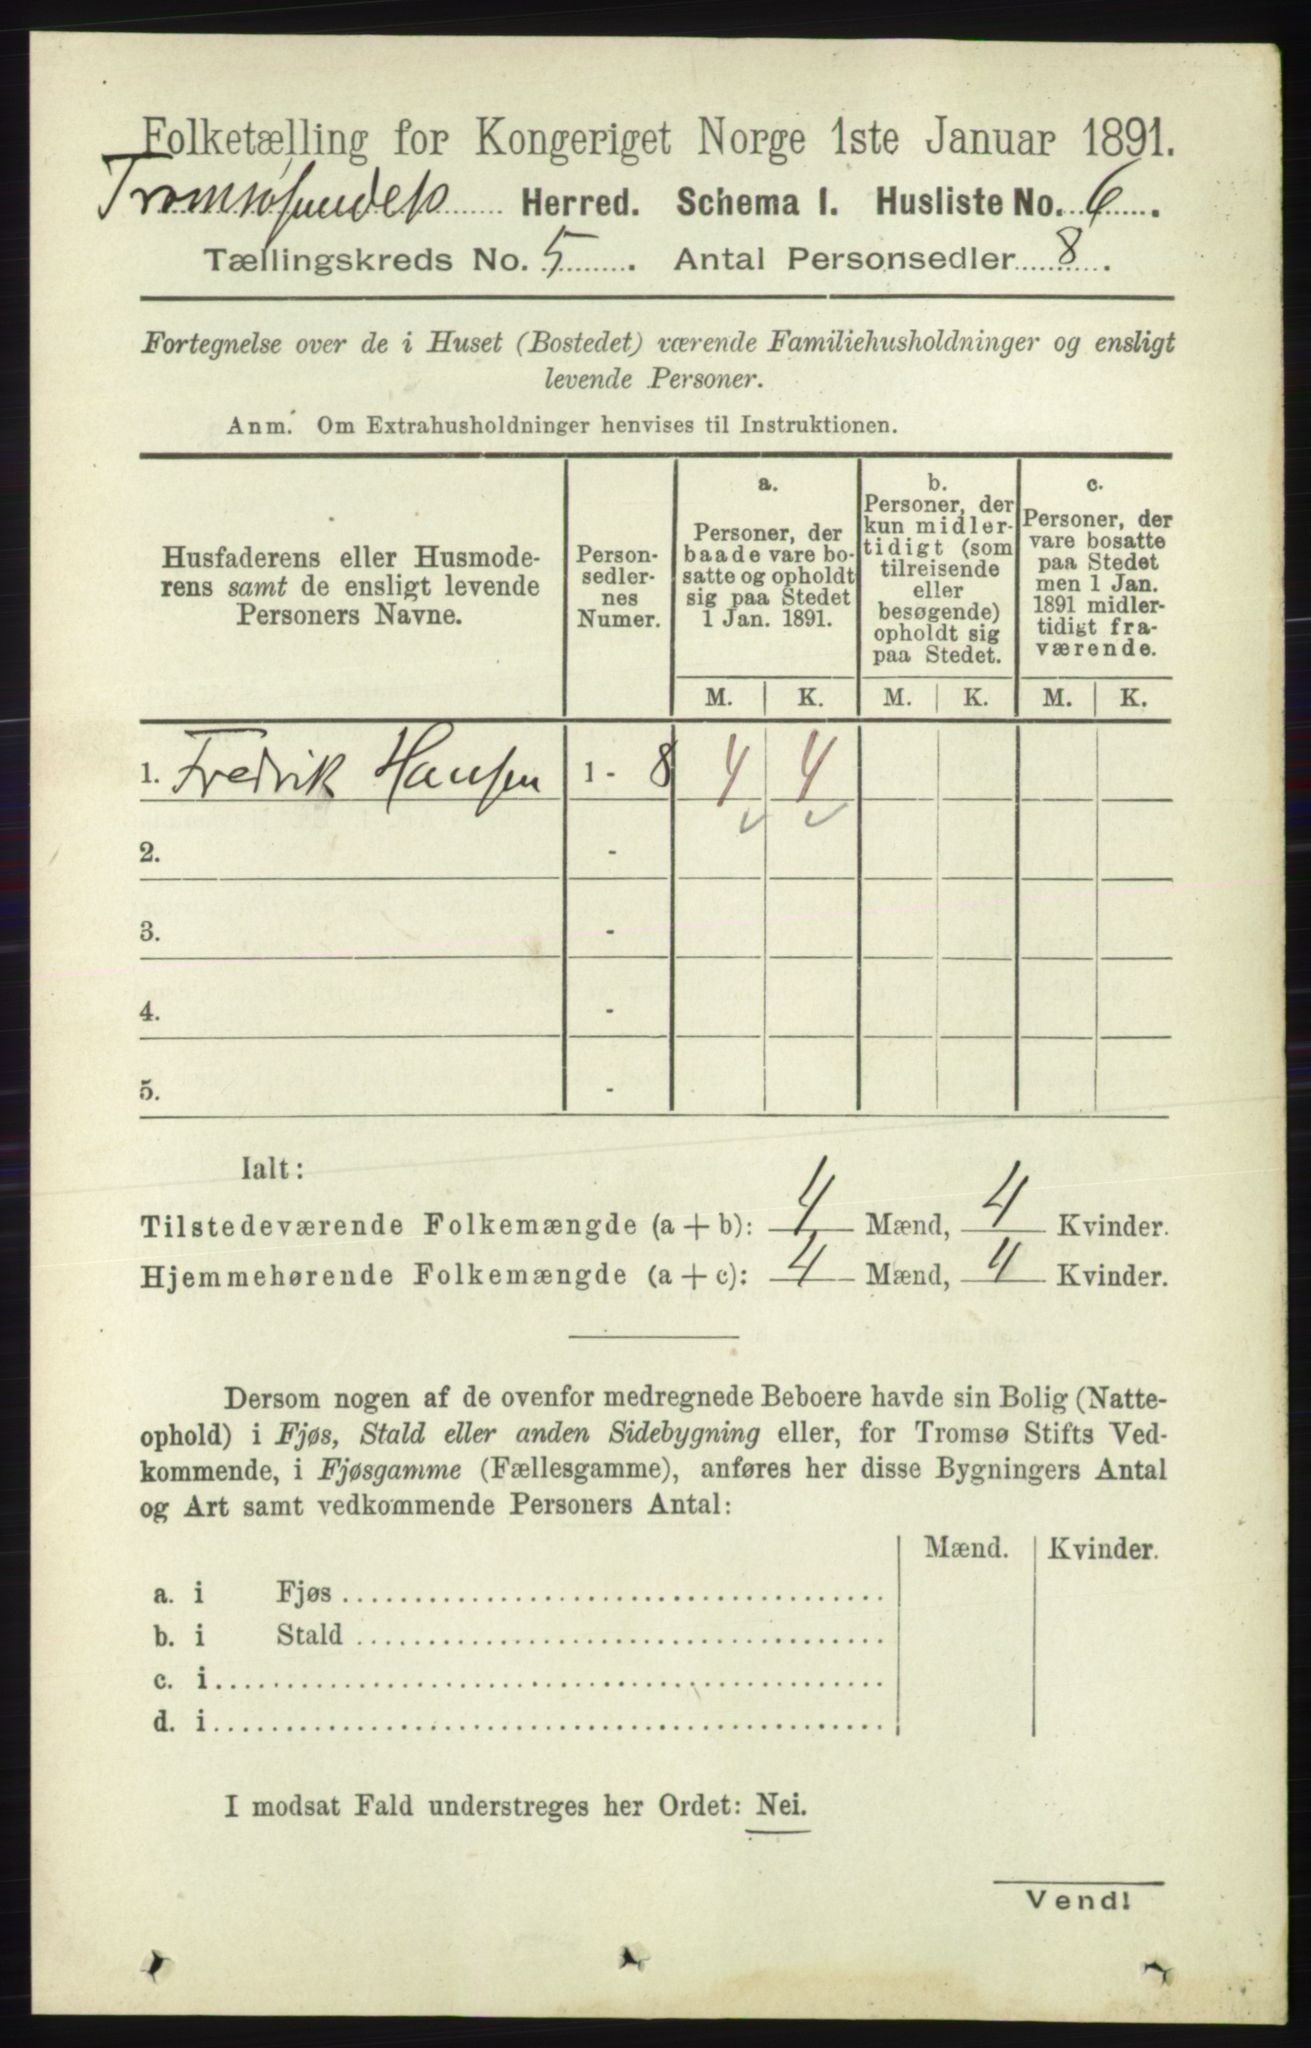 Folketælling for Kongeriget Norge 1ste Januar 1891.
Tromsøsundets Herred. Schema 1. Husliste No. 6.
Tællingskreds No. 5. Antal Personsedler 8.
Fortegnelse over de i Huset (Bostedet) værende Familiehusholdninger og ensligt
levende Personer.
Anm. Om Extrahusholdninger henvises til Instruktionen.
Husfaderens eller Husmode-
rens samt de ensligt levende
Personers Navne.
Person-
sedler-
nes
Numer.
a.
Personer, der
baade vare bo-
satte og opholdt
sig paa Stedet
1 Jan. 1891.
b.
Personer, der
kun midler-
tidigt (som
tilreisende
eller
besøgende)
opholdt sig
paa Stedet.
c.
Personer, der
vare bosatte
paa Stedet
men 1 Jan.
1891 midler-
tidigt fra-
værende.
M. K. M. K. M. K.
1. Fredrik Hansen 1 - 8 4 4
2. -
3. -
4. -
5. -
Ialt:
Tilstedeværende Folkemængde (a + b): 4 Mænd, 4 Kvinder.
Hjemmehørende Folkemængde (a + c): 4 Mænd, 4 Kvinder.
Dersom nogen af de ovenfor medregnede Beboere havde sin Bolig (Natte-
ophold) i Fjøs, Stald eller anden Sidebygning eller, for Tromsø Stifts Ved-
kommende, i Fjøsgamme (Fællesgamme), anføres her disse Bygningers Antal
og Art samt vedkommende Personers Antal:
Mænd. Kvinder.
a. i Fjøs
b. i Stald
c. i
d. i
I modsat Fald understreges her Ordet: Nei.
Vend!